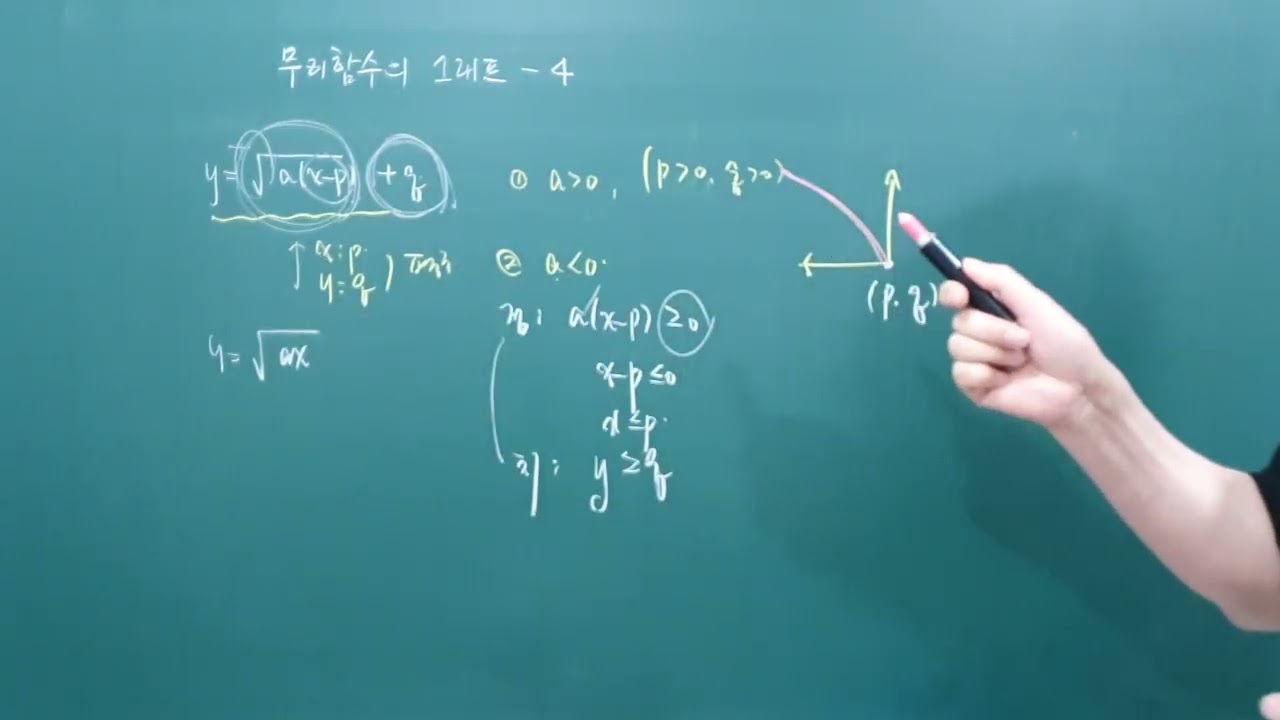 무리함수의 그래프 - 4
y = √a(x-p) + q
↑ x : p
y = q ) 평행이동
y = √ax
① a>0, (p>0, q>0)
② a<0.
정 : a(x-p) ≥0
x-p ≤0
x ≤p.
치 : y ≥q
(p, q)